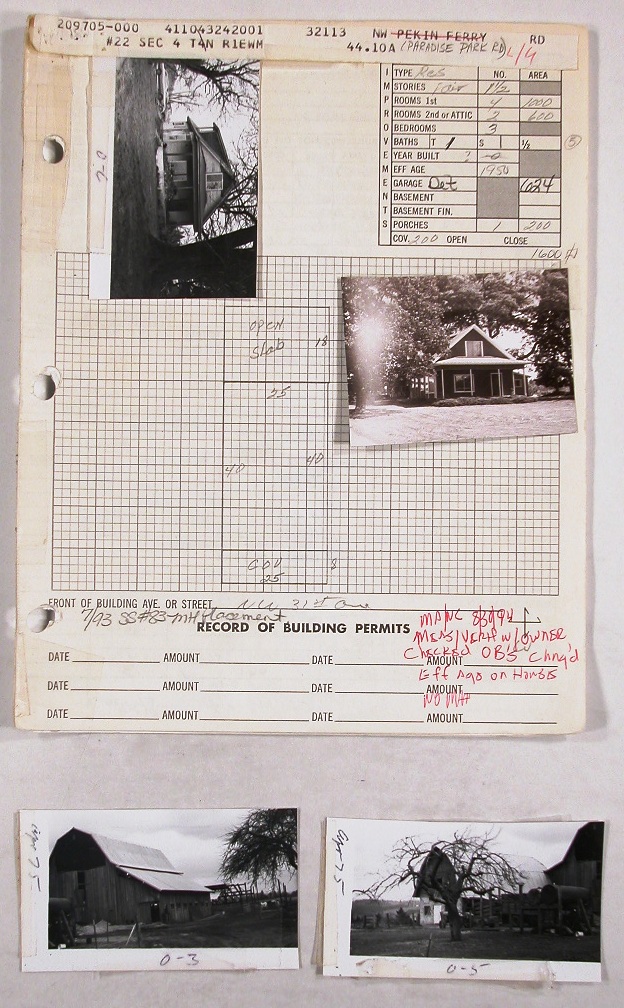 209705-000 411043242001 32113 NW PEKIN FERRY RD
#22 SEC 4 T4N R1EWM 44.10A (PARADISE PARK RD) L/G
IMPROVEMENTS
TYPE Res NO. AREA
STORIES Fair 1 1/2
ROOMS 1st 4 1000
ROOMS 2nd or ATTIC 2 600
BEDROOMS 3
BATHS T 1 S 1 ½
5
YEAR BUILT ?
EFF AGE 1950
GARAGE Det 624
BASEMENT
BASEMENT FIN.
PORCHES 1 200
COV. 200 OPEN CLOSE
1600
0-2
OPEN
Slab 18
25
40 40
COV 8
25
FRONT OF BUILDING AVE. OR STREET NW 31st Ave
7/93 SS#83-MH Placement
RECORD OF BUILDING PERMITS
MA/NC 8/30/94
MEAS/VERIF W/OWNER
Checked OB'S Chng'd
Eff Age on House
NO MAP
DATE AMOUNT DATE AMOUNT
DATE AMOUNT DATE AMOUNT
DATE AMOUNT DATE AMOUNT
Apr 75
0-3
Apr 75
0-5